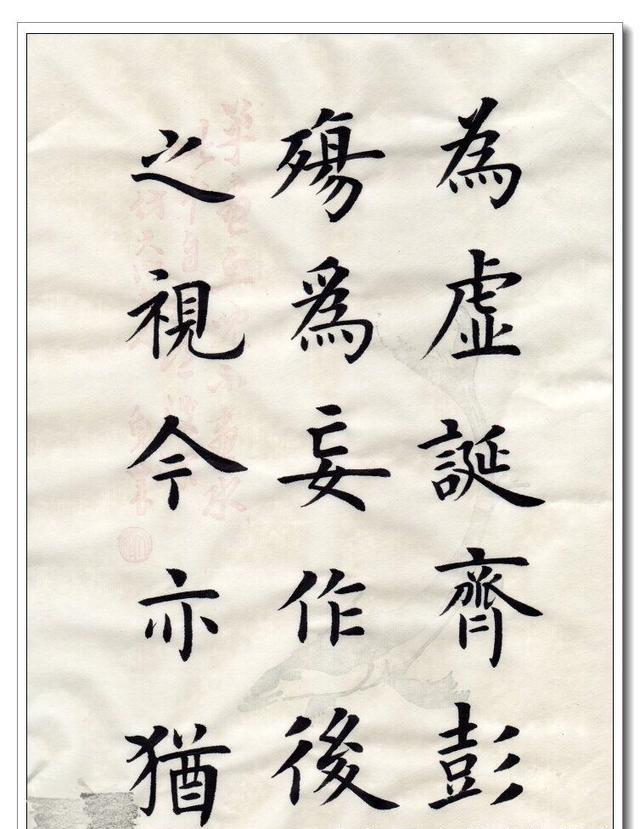 為虛誕齊彭
殤為妄作後
之視今亦猶